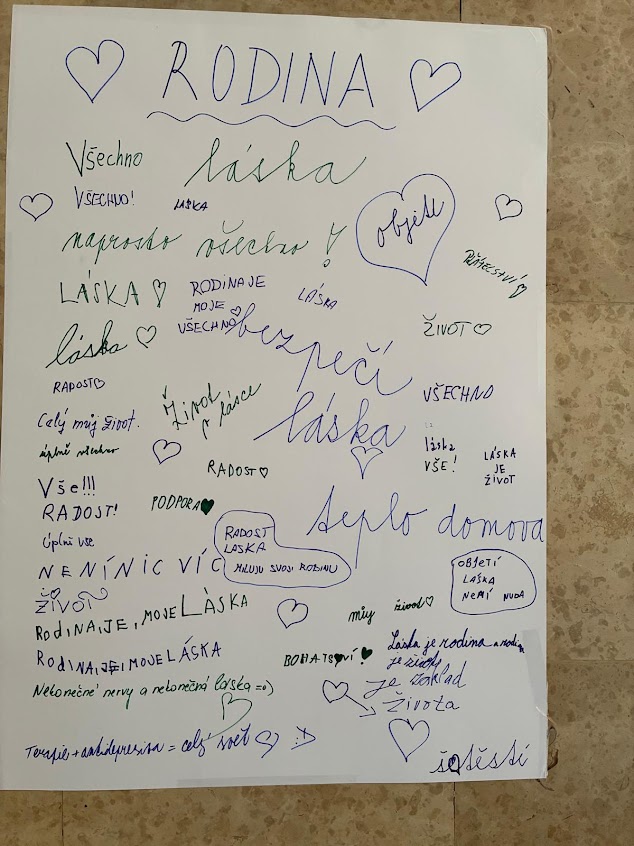 RODINA
Všechno
láska
VŠECHNO!
LÁSKA
objetí
naprosto všechno!
PŘÁTELSTVÍ
LÁSKA
RODINA JE
MOJE
VŠECHNO
LÁSKA
bezpečí
ŽIVOT
láska
RADOST
Život
v lásce
VŠECHNO
Celý můj život.
láska
úplně všechno
láska
VŠE!
LÁSKA
JE
ŽIVOT
RADOST
Vše!!!
PODPORA
RADOST!
teplo domova
RADOST
LASKA
MILUJU SVOJI RODINU
Úplně vše
NENÍ NIC VÍC
OBJETÍ
LÁSKA
NENÍ NUDA
ŽIVOT
RODINA, JE, MOJE LÁSKA
můj život
RODINA, JE, MOJE LÁSKA
BOHATSTVÍ!
Láska je rodina a rodina
je život
Nekonečné nervy a nekonečná láska =o)
je základ
života
Terapie + antidepresiva = celý svět :-)
štěstí